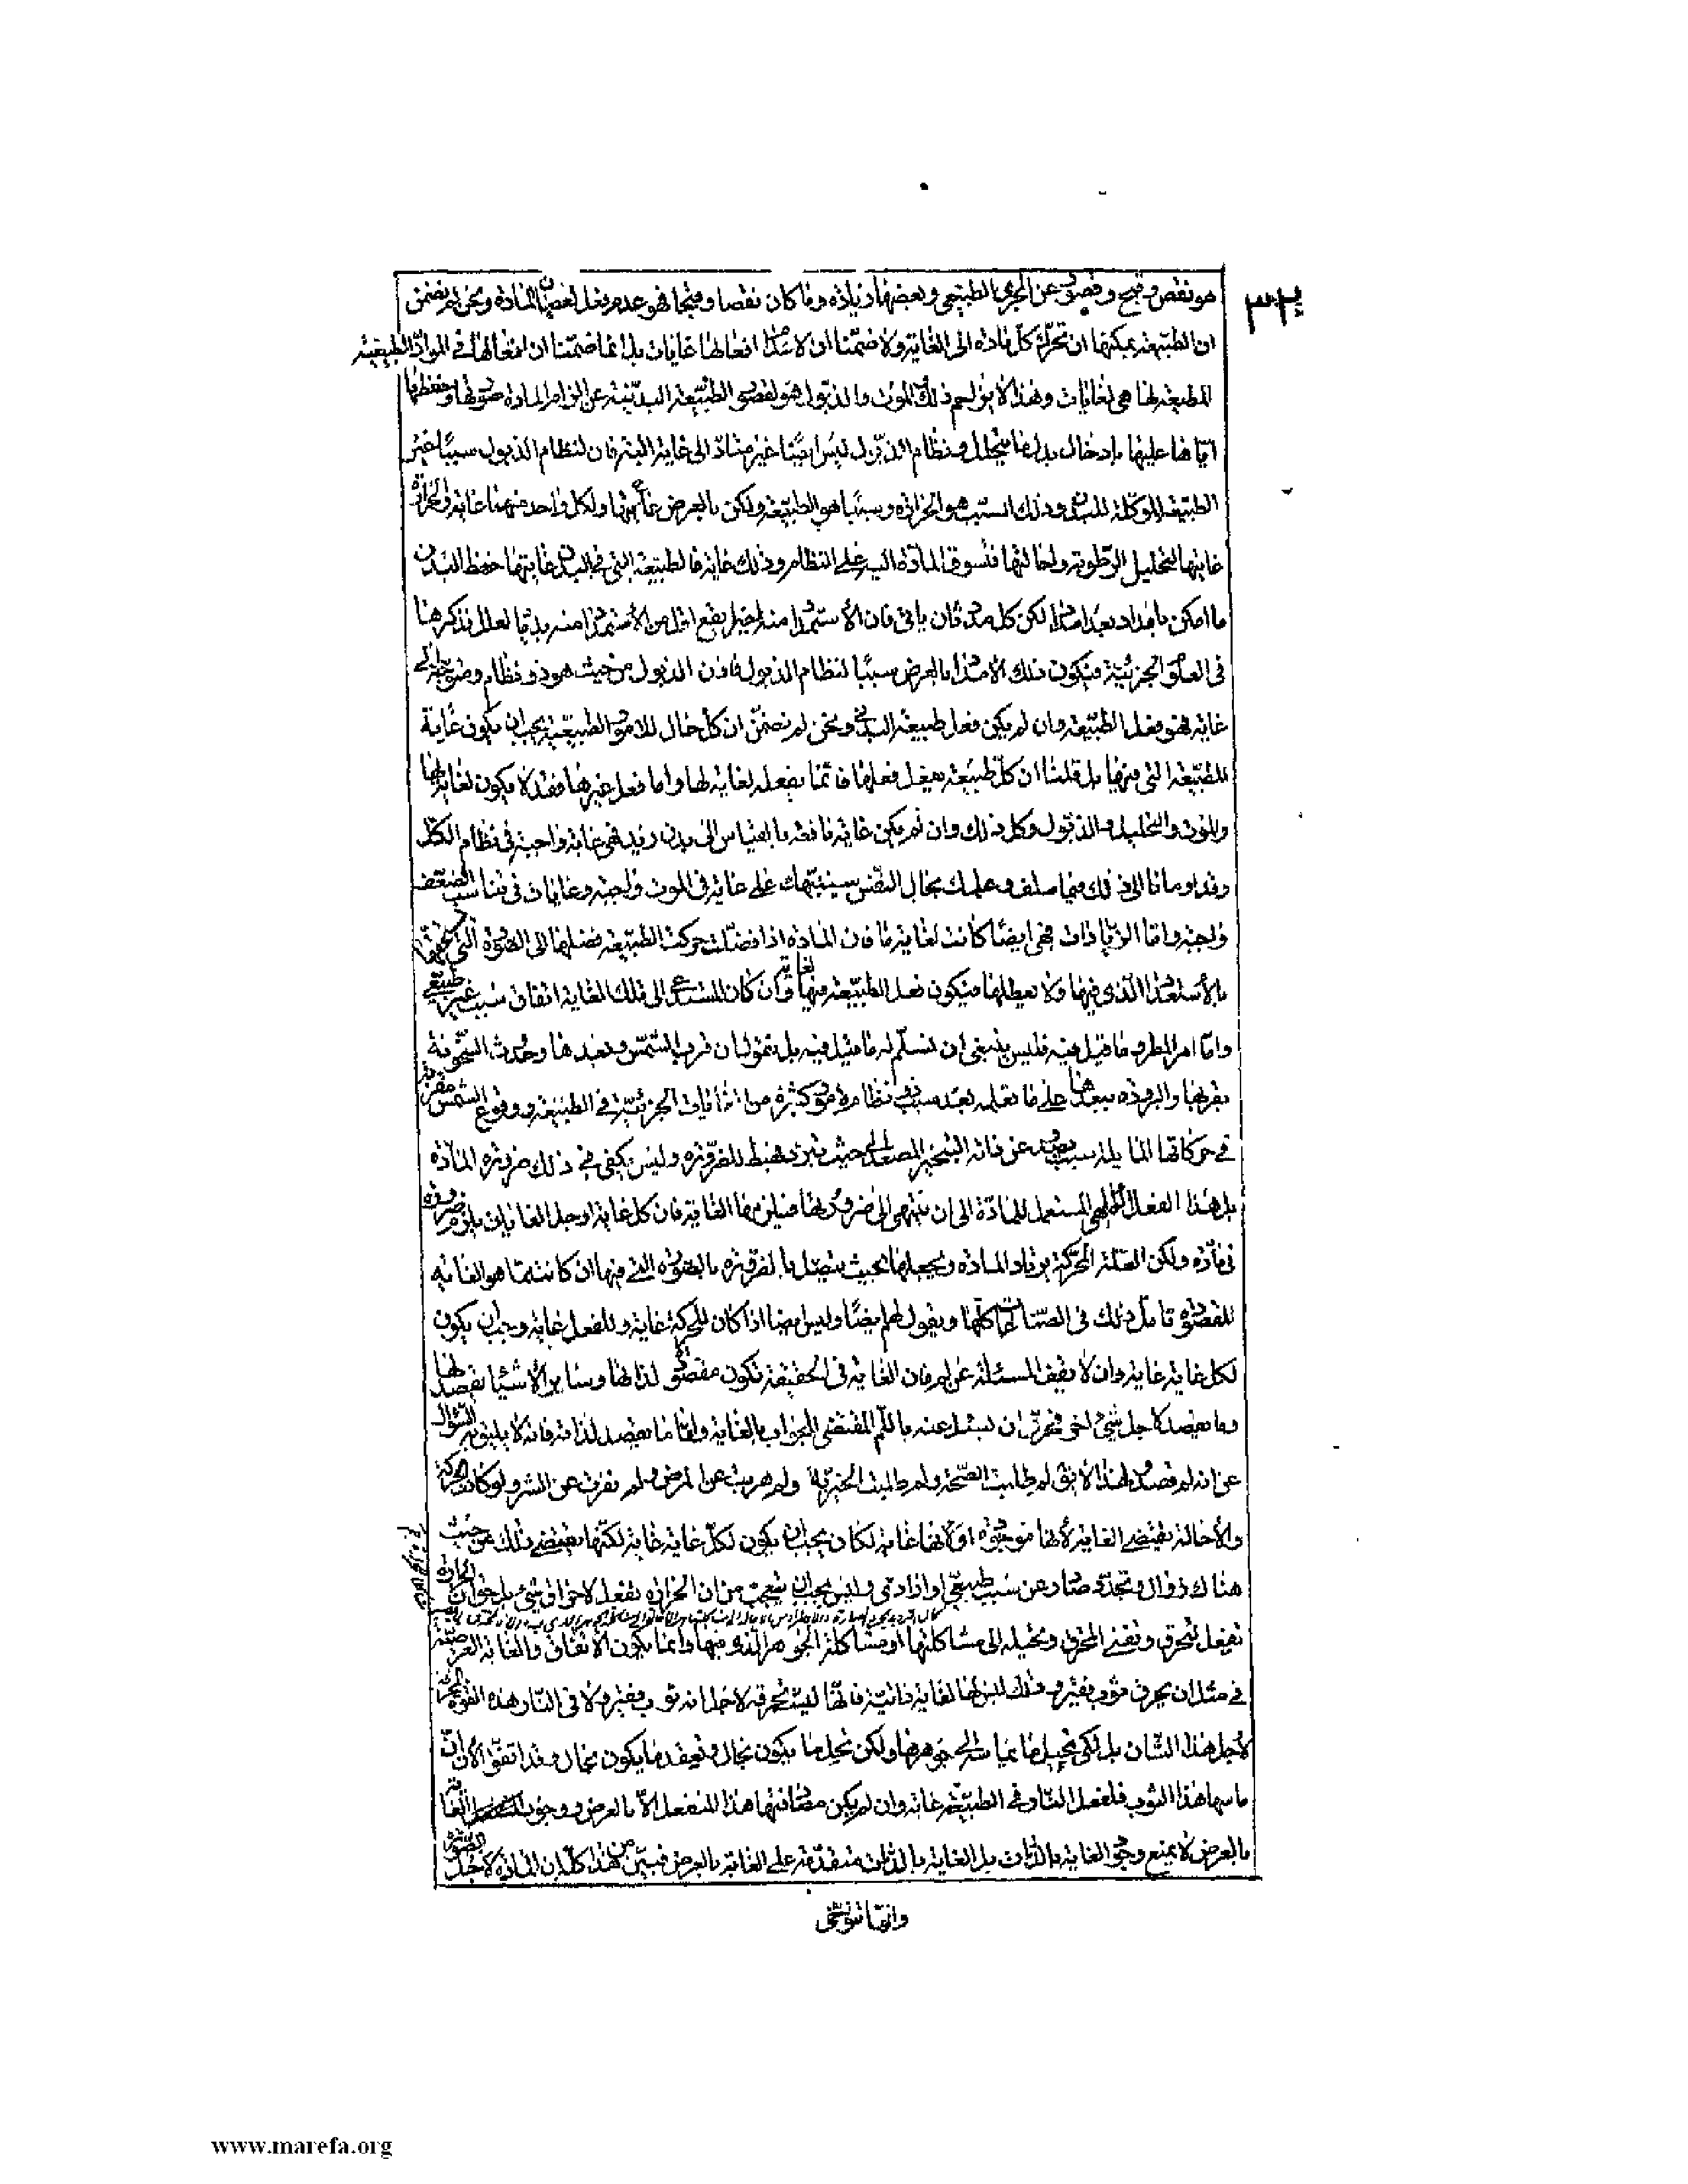 هو نقص وقبح وقصور عن المجرى الطبيعى وبعضها زيادة وما كان نقصا وقبحا فهو عدم فعل لعصيان المادة ونحن لم نضمن
ان الطبيعة يمكنها ان تحرك كل مادة الى الغاية ولا ضمنا ان لاعدام افعالها غايات بل انما ضمنا ان افعالها فى المواد الطبيعية
المطيعة لها هى لغايات وهذا لا يناقض ذلك الموت والذبول هو لقصور الطبيعة البدنية عن الزام المادة صورتها وحفظها
اياها عليها بادخال بدل ما يتحلل ونظام الذبول ليس ايضا غير متأد الى غاية البتة فان لنظام الذبول سببا غير
الطبيعة الموكلة للبدن وذلك السبب هو الحرارة وسببا هو الطبيعة ولكن بالعرض ولكل واحد منهما غاية فالحرارة
غايتها تحليل الرطوبة واحالتها فتسوق المادة اليه على النظام وذلك غاية والطبيعة التى فى البدن غايتها حفظ البدن
ما امكن بامداد بعد امداد لكن كل مدد ثان ياتى فان الاستمداد منه اخيرا يقع اقل من الاستمداد منه بديا لعلل نذكرها
فى العلوم الجزئية فيكون ذلك الامداد بالعرض سببا لنظام الذبول فاذن الذبول من حيث هو ذو نظام ومتوجه الى
غاية فهو فعل الطبيعة وان لم يكن فعل طبيعة البدن ونحن لم نضمن ان كل حال للامور الطبيعية يجب ان يكون غاية
للطبيعة التى فيها بل قلنا ان كل طبيعة تفعل فعلها فانما يفعله لغاية لها واما فعل غيرها فقد لا يكون لغاية لها
والموت والتحليل والذبول وكل ذلك وان لم يكن غاية نافعة بالقياس الى بدن زيد فهى غاية واجبة فى نظام الكل
وقد اومانا الى ذلك فيما سلف وعلمك بحال النفس سينبهك على غاية فى الموت واجبة وغايات فى تناسب الضعف
واجبة واما الزيادات فهى ايضا كائنة لغاية ما فان المادة اذا فضلت حركت الطبيعة فضلها الى الصورة التى تستحقها
بالاستعداد الذى فيها ولا تعطلها فيكون فعل الطبيعة فيها لغاية وان كان المستدعى الى تلك الغاية اتفاق سبب غير طبيعى
واما امر المطر وما قيل فيه فليس ينبغى ان نسلم له ما قيل فيه بل نقول ان قرب الشمس وبعدها وحدوث السخونة
بقربها والبرودة ببعدها على ما تعلمه بعد سبب ذو نظام لامور كثيرة من الغايات الجزئية فى الطبيعة ووقوع الشمس مقربة
فى حركاتها المايلة سبب يصدر عن ذاته التبخير المصعد الى حيث تبرد فيهبط للضرورة وليس يكفى فى ذلك ضرورة المادة
بل هذا الفعل الالهى المستعمل للمادة الى ان ينتهى الى ضرورتها فيلزمها الغاية فان كل غاية او جل الغايات يلزم ضرورة
فى مادة ولكن العلة المحركة ترتاد المادة وتجعلها بحيث يتصل بالضرورة بالصورة التى فيها ان كانت ما هو الغاية
المقصودة تامل ذلك فى الصناعات كلها ونقول لهم ايضا وليس ايضا اذا كان للحركة غاية وللفعل غاية وجب ان يكون
لكل غاية غاية وان لا يقف المسئلة عن لم فان الغاية فى الحقيقة تكون مقصودة لذاتها وساير الاشياء يقصد لها
وما يقصد لاجل شىء اخر فحرى ان يسئل عنه باللم المقتضى الجواب بالغاية واما ما يقصد لذاته فانه لا يليق به السؤال
عن انه لم قصد ولهذا لا يق لم طلبت الصحة ولم طلبت الخيرية ولم هربت عن المرض ولم نفرت عن الشر ولو كانت الحركة
والاحالة تقتضى الغاية لانها موجودة او لانها غاية لكان يجب ان يكون لكل غاية غاية لكنها تقتضى ذلك من حيث
هناك زوال وتجدد صادر عن سبب طبيعى او ارادى وليس يجب ان يتعجب من ان الحرارة تفعل لاحراق شىء بل حق ان الحرارة
تفعل لتحرق وتفنى المحرق وتحيله الى مشاكلتها او مشاكلة الجوهر الذى فيها وانما يكون الاتفاق والغاية العرضية
فى مثل ان يحرق ثوب فقير وذلك ليس لها لغاية ذاتية فانها ليست تحرقه لاجل انه ثوب فقير ولا فى النار هذه القوة المحرقة
لاجل هذا الشان بل لكى تحيل ما يماسها الى جوهرها ولكن تحل ما يكون بحال وتعقد ما يكون بحال وقد اتفق الان ان
ماسها هذا الثوب فلفعل النار فى الطبيعة غاية وان لم يكن مصادفتها هذا المشتعل الا بالعرض ووجود الغاية
بالعرض لا يمنع وجود الغاية بالذات بل الغاية بالذات متقدمة على الغاية بالعرض فبين من هذا كله ان المادة لاجل الصورة
وانها تتوخى
www.marefa.org